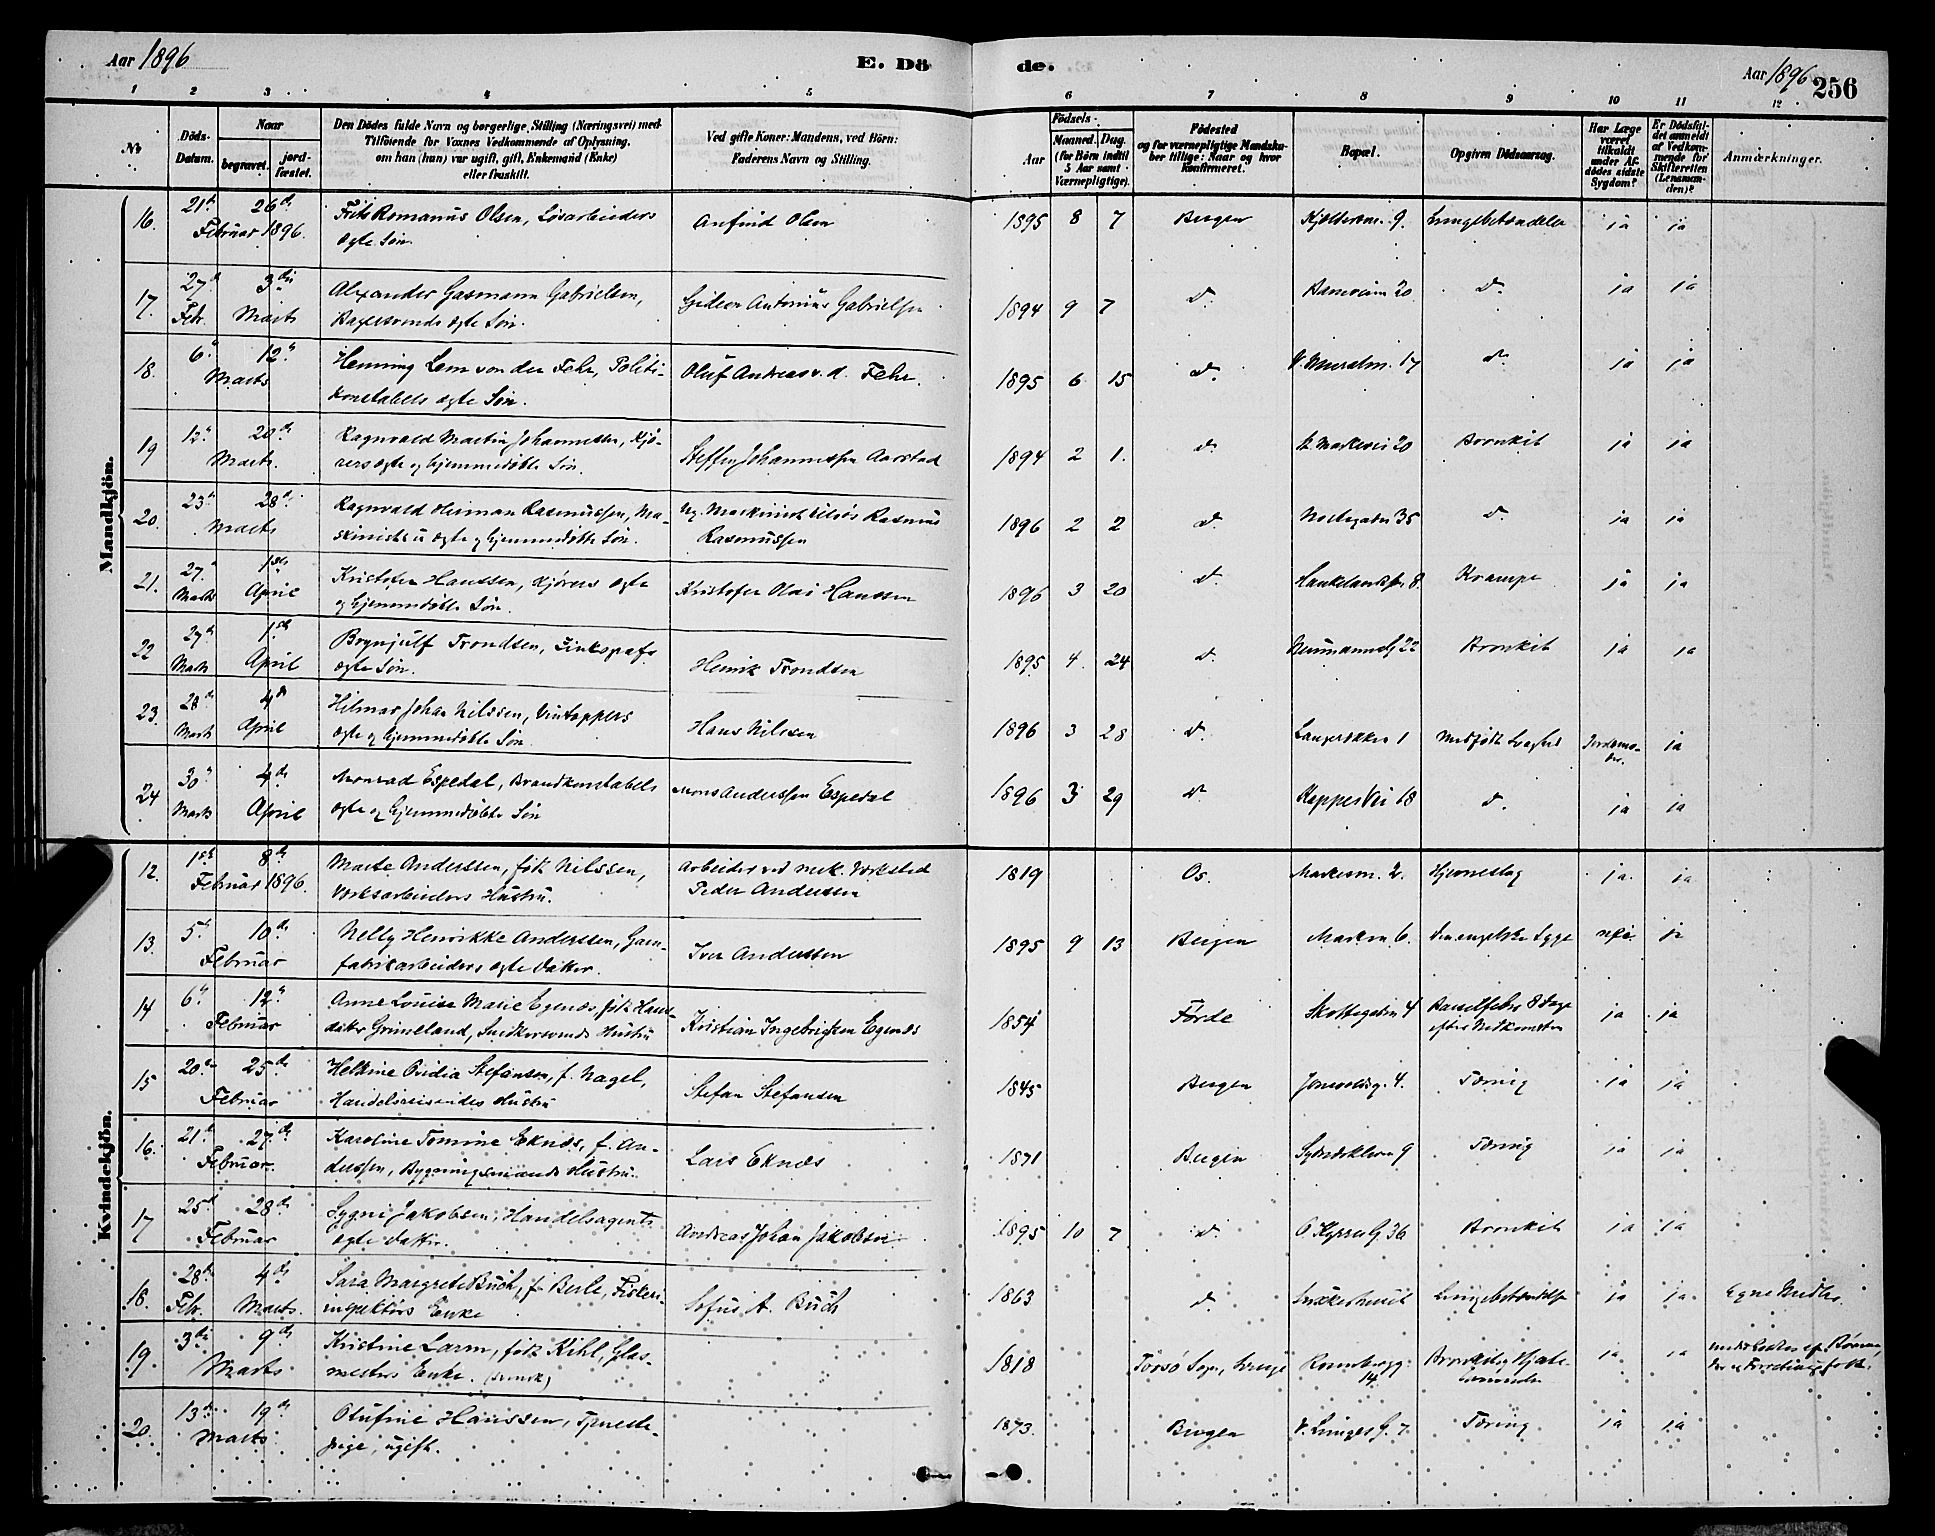 Aar 1896 E. Dö de. Aar 1896 256
1 2 3 4 5 6 7 8 9 10 11 12
No. Döds-Datum. Naar begravet. jordfæstet. Den Dödes fulde Navn og borgerlige Stilling (Næringsvei) med Tilföiende for Voxnes Vedkommende af Oplysning, om han (hun) var ugift, gift, Enkemand (Enke) eller fraskilt. Ved gifte Koner: Mandens, ved Börn: Faderens Navn og Stilling. Födsels- Aar Maaned. Dag. (for Börn indtil 5 Aar samt Værnepligtige). Födested og for værnepligtige Mandskaber tillige: Naar og hvor konfirmeret. Bopæl. Opgiven Dödsaarsag. Har Læge været tilkaldt under Afdödes sidste Sygdom? Er Dödsfaldet anmeldt af Vedkommende for Skifteretten (Lensmanden)? Anmærkninger.
Mandkjön.
16. 21de 26de Februar 1896. Frits Romanus Olsen, Løsarbeiders ægte Søn. Anfind Olsen 1895 8 7 Bergen 9. Lungebetændelse ja ja
17. 27de Febr. 3die Marts Alexander Gasmann Gabrielsen, Bagersvends ægte Søn. Gideon Antonius Gabrielsen 1894 9 7 do. 20 do. ja ja
18. 6te 12te Marts Henning Lem von der Fehr, Politikonstabels ægte Søn. Oluf Andreas v. d. Fehr. 1895 6 15 do. 17 do. ja ja
19 12te 20de Marts. Ragnvald Martin Johannessen, Kjørers ægte og hjemmedøbte Søn. Steffen Johannessen Aarstad 1894 2 1. do. Markevei 20 Bronkit ja ja
20. 23de 28de Marts Ragnvald Herman Rasmussen, Maskinists u ægte og hjemmedøbte Søn. Ug. Maskinist Rasmus Rasmussen 1896 2 2 do. Nostegaten 35 do. ja ja
21. 27de Marts 1ste April Kristofer Hanssen, Kjørers ægte og hjemmedøbte Søn. Kristofer Olai Hanssen 1896 3 20 do. 8. Krampe ja ja
22 27de Marts 1ste April Brynjulf Trondsen, ægte Søn. Henrik Trondsen 1895 4. 24 do. Neumannsg 22 Bronkit ja ja
23. 28de Marts 4de April Hilmar Johan Nilssen, Vintappers ægte og hjemmedøbte Søn. Hans Nilssen 1896 3 28 do. 1 Medfødt Svaghed Jordemoder. ja
24 30te Marts 4de April Monrad Espedal, Brandkonstabels ægte og hjemmedøbte Søn Mons Anderssen Espedal 1896 3 29 do. 18 do. ja ja
Kvindekjön.
12. 1ste 8de Februar 1896. Marte Anderssen, født Nilssen, Værksarbeiders Hustru. Arbeider ved mek. Værksted Peder Anderssen 1819 Os. Markusm. 2. Hjerneslag ja. ja
13. 5te 10de Februar Nelly Henrikke Anderssen, Garnfabrikarbeiders ægte Datter. Iver Anderssen 1895 9 13 Bergen Marken 6. Den engelske Syge nei ja
14 6te 12te Februar Anne Louise Marie Egenæs, født Hansdatter Grimeland, Snedkersvends Hustru Kristian Ingebrigtsen Egenæs 1854 Førde Skottegaten 4 Barselfeber 8 Dage efter Nedkomsten ja ja
15 20de 25de Februar Helkine Ovidia Stefansen, f. Nagel, Handelsreisendes Hustru Stefan Stefansen 1845 Bergen 4. Tæring ja ja
16. 21de 27de Februar. Karoline Tomine Eknæs, f. Anderssen, Bygningsmands Hustru. Lars Eknæs 1871 Bergen 9 Tæring ja ja
17 25de 28de Februar Sygni Jakobsen, Handelsagents ægte Datter. Andreas Johan Jakobsen 1895 10 7 do. O. Kyrresg 36 Bronkit ja ja
18. 28de Febr. 4de Marts. Sara Margrete Buch, f. Berle, Fiskeriinspektørs Enke Sofus A. Buch 1863 do. Lungebetændelse ja ja. Egne Midler.
19. 3die 9de Marts Kristine Larm, født Kihl, Glasmesters Enke. (svensk) 1818 Torsö Sogn, Sverige Rosenbergg: 14. ja ja
20. 13de 19de Marts Olufine Hanssen, Tjenestepige, ugift. 1873 Bergen 7 Tæring ja ja